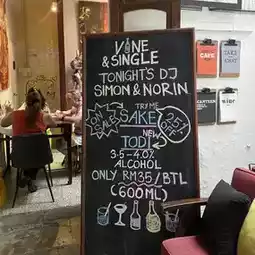 VINE
& SINGLE
TONIGHT'S DJ
SIMON & NORIN
TRY ME
ON SALES
SAKE
25% OFF
NEW
TODI
3.5-4.0%
ALCOHOL
ONLY RM35/BTL
(600ML)
CAFE
TAKE